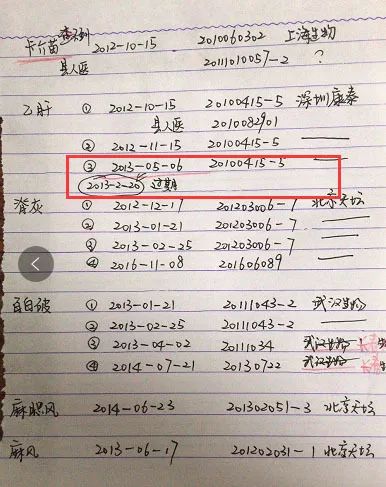 卡介苗 2012-10-15 2010060302 上海生物
县人医 2011010057-2 ?
乙肝 ① 2012-10-15 20100415-5 深圳康泰
县人医 2010082901
② 2012-11-15 20100415-5 ——
③ 2013-05-06 20100415-5 ——
2013-2-20 过期
脊灰 ① 2012-12-17 201203006-7 北京天坛
② 2013-01-21 201203006-7 ——
③ 2013-02-25 201203006-7 ——
④ 2016-11-08 201606089 ——
百白破 ① 2013-01-21 20111043-2 武汉生物
② 2013-02-25 20111043-2 ——
③ 2013-04-02 20111034 武汉生物 长春
④ 2014-07-21 20130722 武汉生物 长春
麻腮风 2014-06-23 201302051-3 北京天坛
麻风 2013-06-17 201202031-1 北京天坛